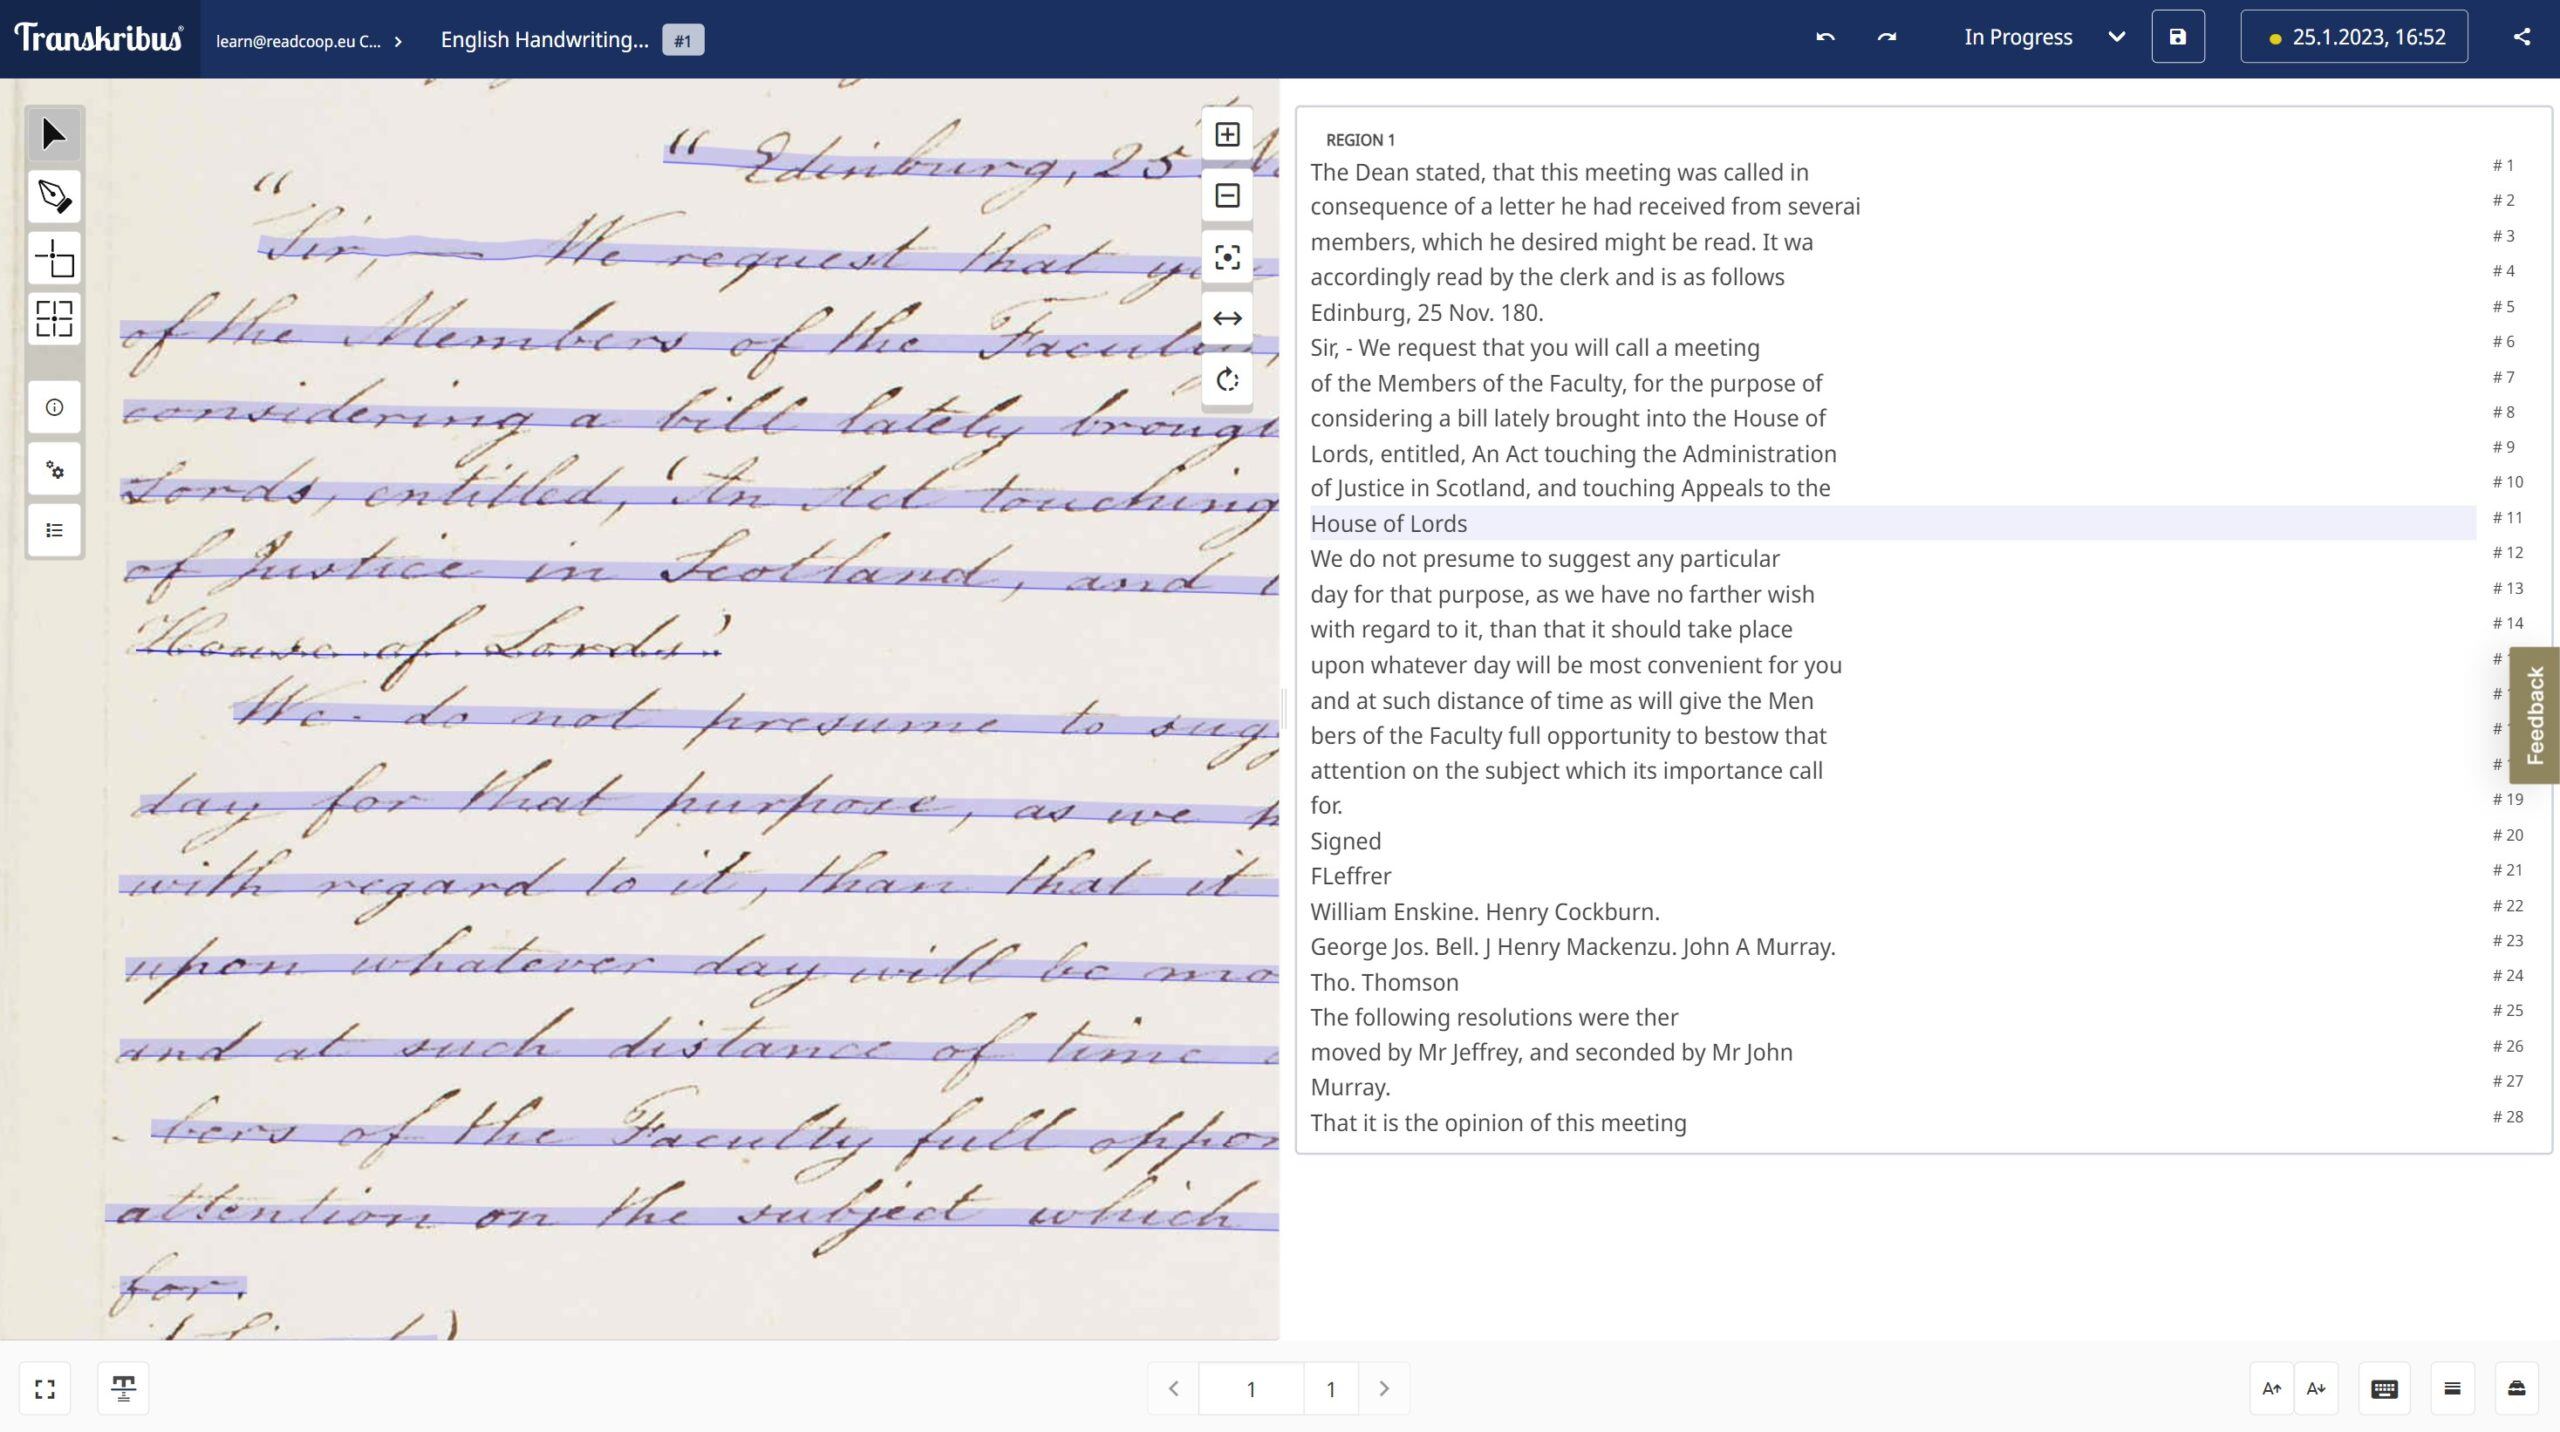 Transkribus
learn@readcoop.eu C... >
English Handwriting... #1
In Progress
25.1.2023, 16:52
" Edinburg, 25 N
"
Sir, — We request that yo
of the Members of the Faculty,
considering a bill lately brough
Lords, entitled, 'An Act touching
of Justice in Scotland, and t
House of Lords'.
We do not presume to sugg
day for that purpose, as we h
with regard to it, than that it
upon whatever day will be mo
and at such distance of time a
- bers of the Faculty full oppor
attention on the subject which
for.
REGION 1
The Dean stated, that this meeting was called in #1
consequence of a letter he had received from severai #2
members, which he desired might be read. It wa #3
accordingly read by the clerk and is as follows #4
Edinburg, 25 Nov. 180. #5
Sir, - We request that you will call a meeting #6
of the Members of the Faculty, for the purpose of #7
considering a bill lately brought into the House of #8
Lords, entitled, An Act touching the Administration #9
of Justice in Scotland, and touching Appeals to the #10
House of Lords #11
We do not presume to suggest any particular #12
day for that purpose, as we have no farther wish #13
with regard to it, than that it should take place #14
upon whatever day will be most convenient for you #
and at such distance of time as will give the Men #
bers of the Faculty full opportunity to bestow that #
attention on the subject which its importance call #
for. #19
Signed #20
FLeffrer #21
William Enskine. Henry Cockburn. #22
George Jos. Bell. J Henry Mackenzu. John A Murray. #23
Tho. Thomson #24
The following resolutions were ther #25
moved by Mr Jeffrey, and seconded by Mr John #26
Murray. #27
That it is the opinion of this meeting #28
Feedback
1 1
A A